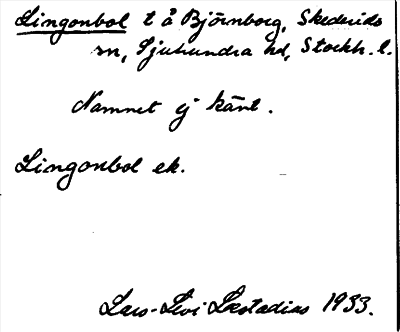 Lingonbol t å Björnborg, Skederids
sn, Sjuhundra hd, Stockh. l.
Namnet ej känt.
Lingonbol ek.
Lars-Levi Læstadius 1933.